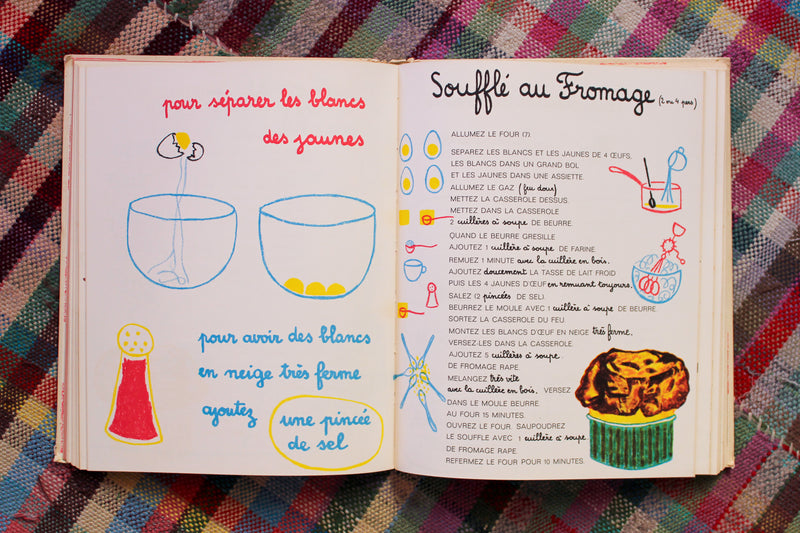 pour séparer les blancs
des jaunes
pour avoir des blancs
en neige très ferme
ajoutez
une pincée
de sel
Soufflé au Fromage (2 ou 4 pers)
ALLUMEZ LE FOUR (7)
SEPAREZ LES BLANCS ET LES JAUNES DE 4 ŒUFS,
LES BLANCS DANS UN GRAND BOL
ET LES JAUNES DANS UNE ASSIETTE.
ALLUMEZ LE GAZ (feu doux)
METTEZ LA CASSEROLE DESSUS.
METTEZ DANS LA CASSEROLE
2 cuillères à soupe DE BEURRE.
QUAND LE BEURRE GRESILLE
AJOUTEZ 1 cuillère à soupe DE FARINE.
REMUEZ 1 MINUTE avec la cuillère en bois.
AJOUTEZ doucement LA TASSE DE LAIT FROID
PUIS LES 4 JAUNES D'ŒUF en remuant toujours.
SALEZ (2 pincées DE SEL).
BEURREZ LE MOULE AVEC 1 cuillère à soupe DE BEURRE.
SORTEZ LA CASSEROLE DU FEU
MONTEZ LES BLANCS D'ŒUF EN NEIGE très ferme,
VERSEZ-LES DANS LA CASSEROLE.
AJOUTEZ 5 cuillères à soupe
DE FROMAGE RAPE.
MELANGEZ très vite
avec la cuillère en bois. VERSEZ
DANS LE MOULE BEURRE
AU FOUR 15 MINUTES.
OUVREZ LE FOUR. SAUPOUDREZ
LE SOUFFLE AVEC 1 cuillère à soupe
DE FROMAGE RAPE.
REFERMEZ LE FOUR POUR 10 MINUTES.